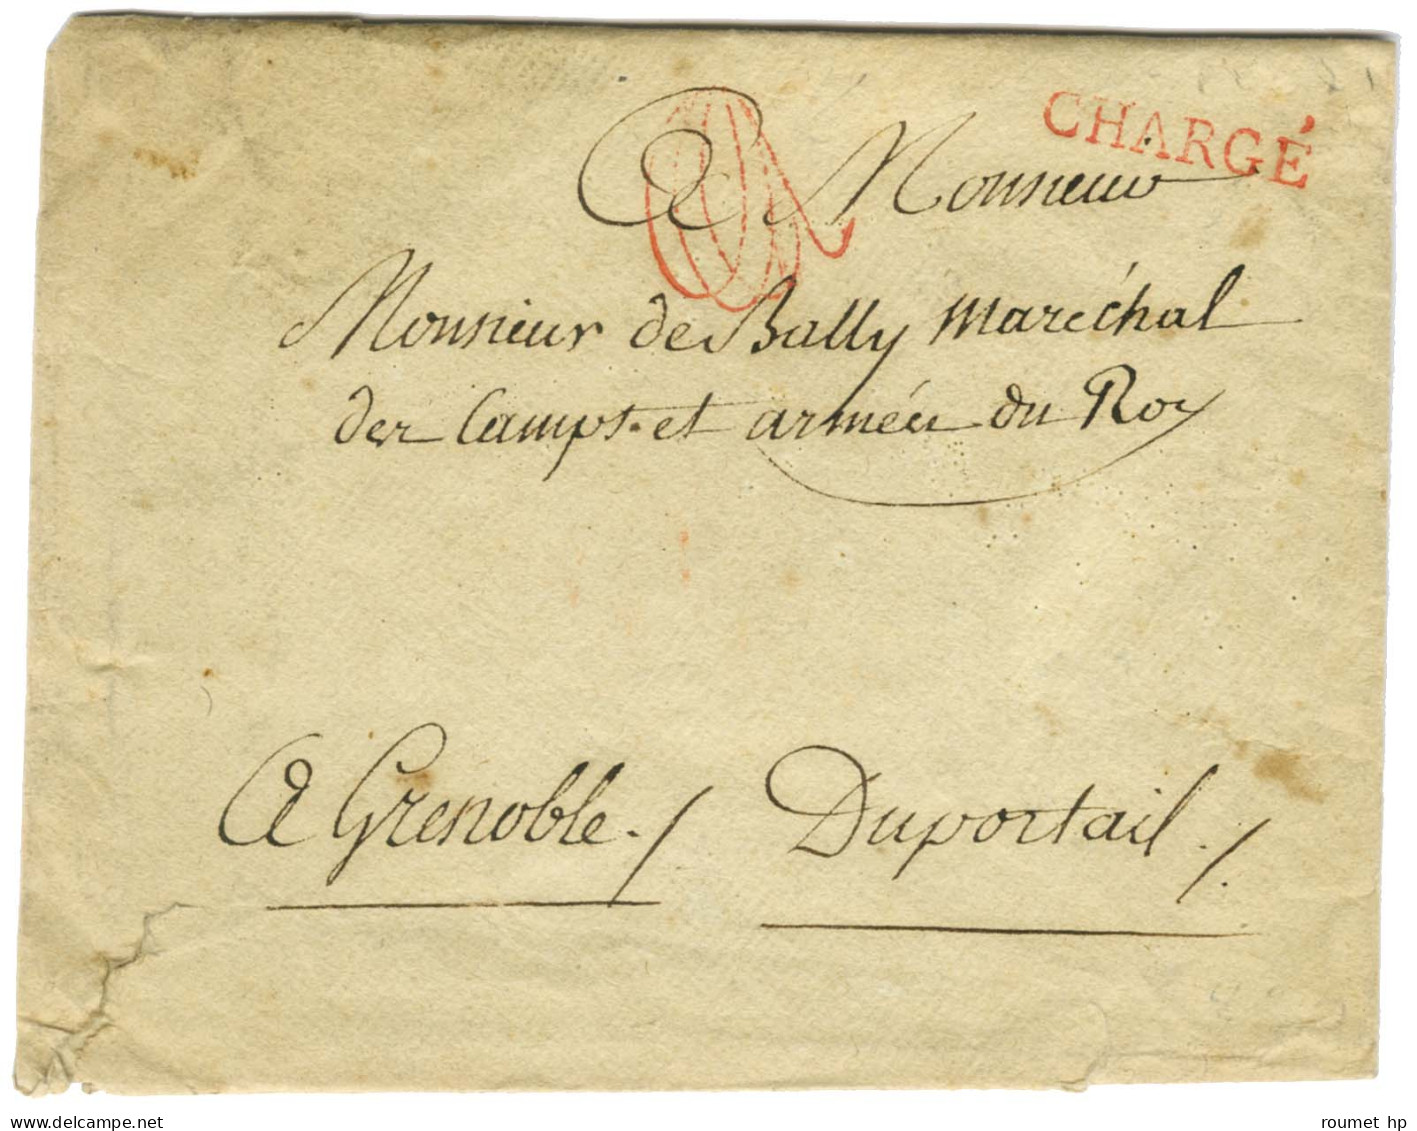 CHARGÉ
A Monsieur
Monsieur de Bally Maréchal
des Camps et armées du Roy
A Grenoble ./ Duportail ./
www.delcampe.net
roumet hp